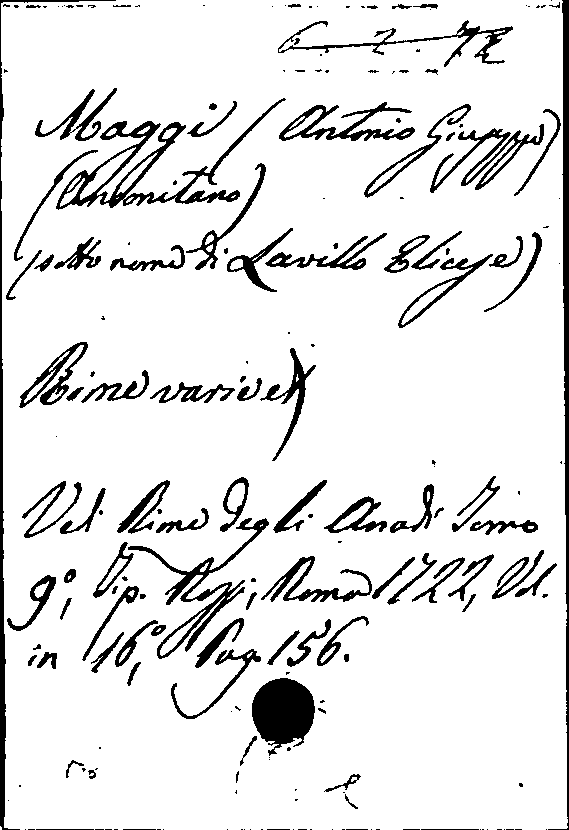 6. 2. 72
Maggi (Antonio Giuseppe)
(Anconitano)
(sotto nome di Lavillo Elicese)
Rime varie
Vedi Rime degli Arcadi Tomo
9°, Tip. Rossi, Roma 1722, Vol.
in 16°, Pag. 156.